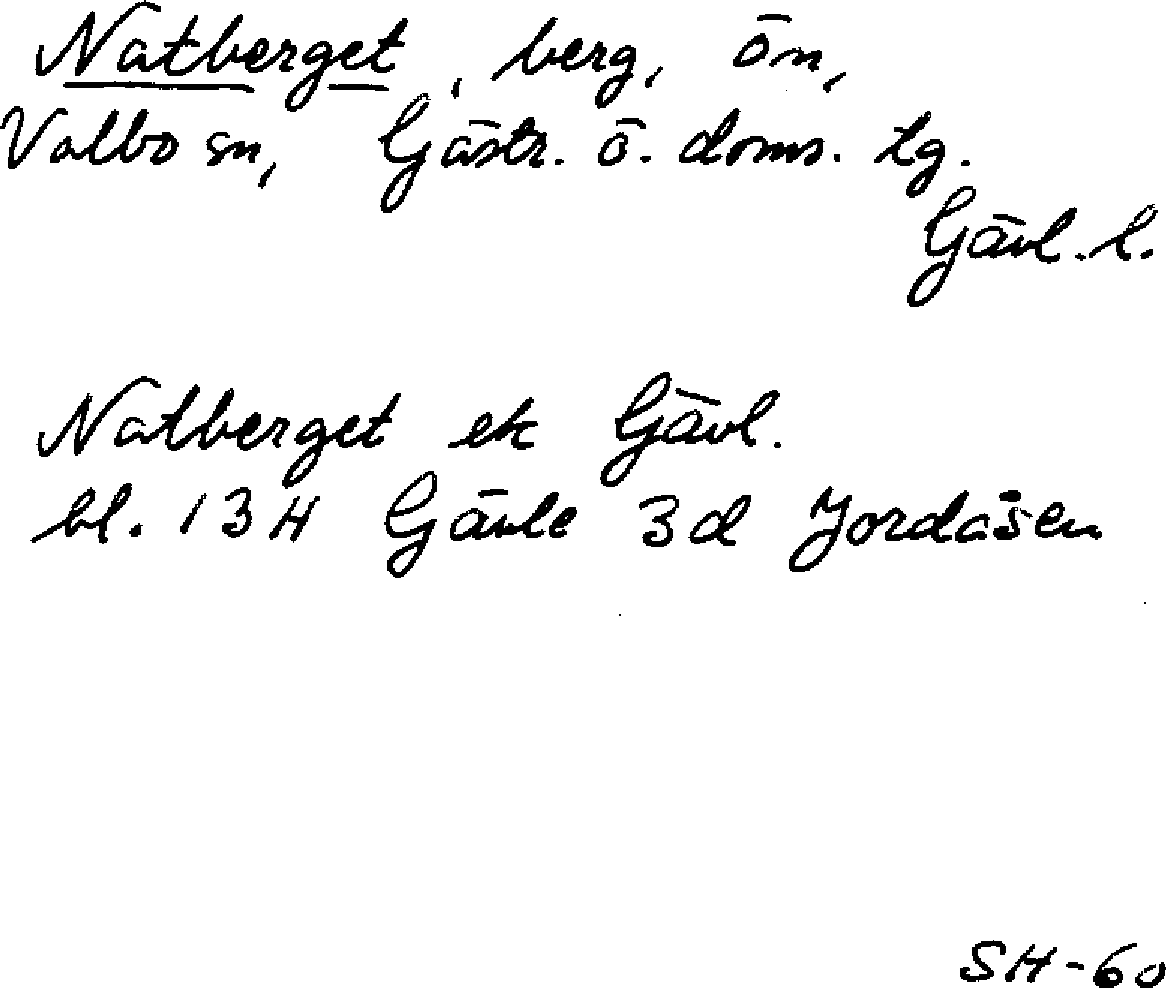 Natberget, berg, ön,
Valbo sn, Gästr. ö. doms. tg.
Gävl. l.
Natberget ek Gävl.
bl. 13H Gävle 3d Jordåsen
SH-60